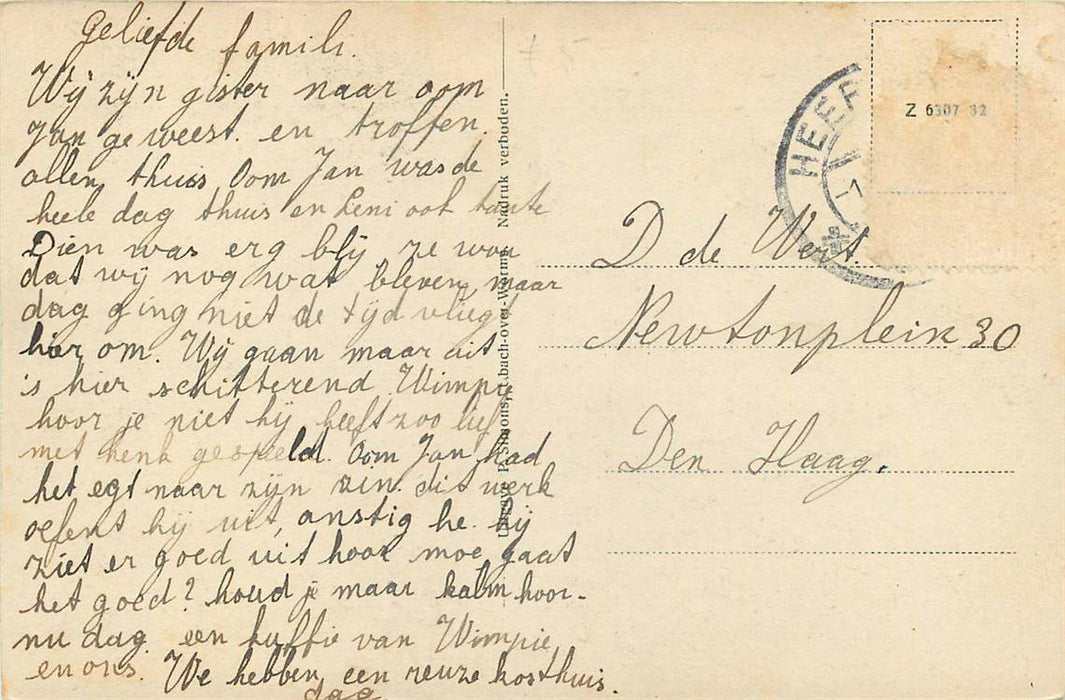 Geliefde famili.
Wij zijn gister naar oom
Jan geweest. en troffen.
allen thuis, Oom Jan was de
heele dag thuis en Leni ook tante
Dien was erg blij ze wou
dat wij nog wat bleven, maar
dag ging niet de tijd vliegt
hier om. Wij gaan maar uit
is hier schitterend Wimpie
hoor je niet hij heeft zoo lief
met henk gespeeld. Oom Jan had
het egt naar zijn zin. dit werk
oefent hij uit, anstig he. hij
ziet er goed uit hoor moe, gaat
het goed? houd je maar kalm hoor-
nu dag een kuffie van Wimpie
en ons. We hebben een reuze kosthuis.
dag
Uitgave P. Simons, Ubach-over-Worms. Nadruk verboden.
HEER
-1
Z 6307 32
D de Wert.
Newtonplein 30
Den Haag.